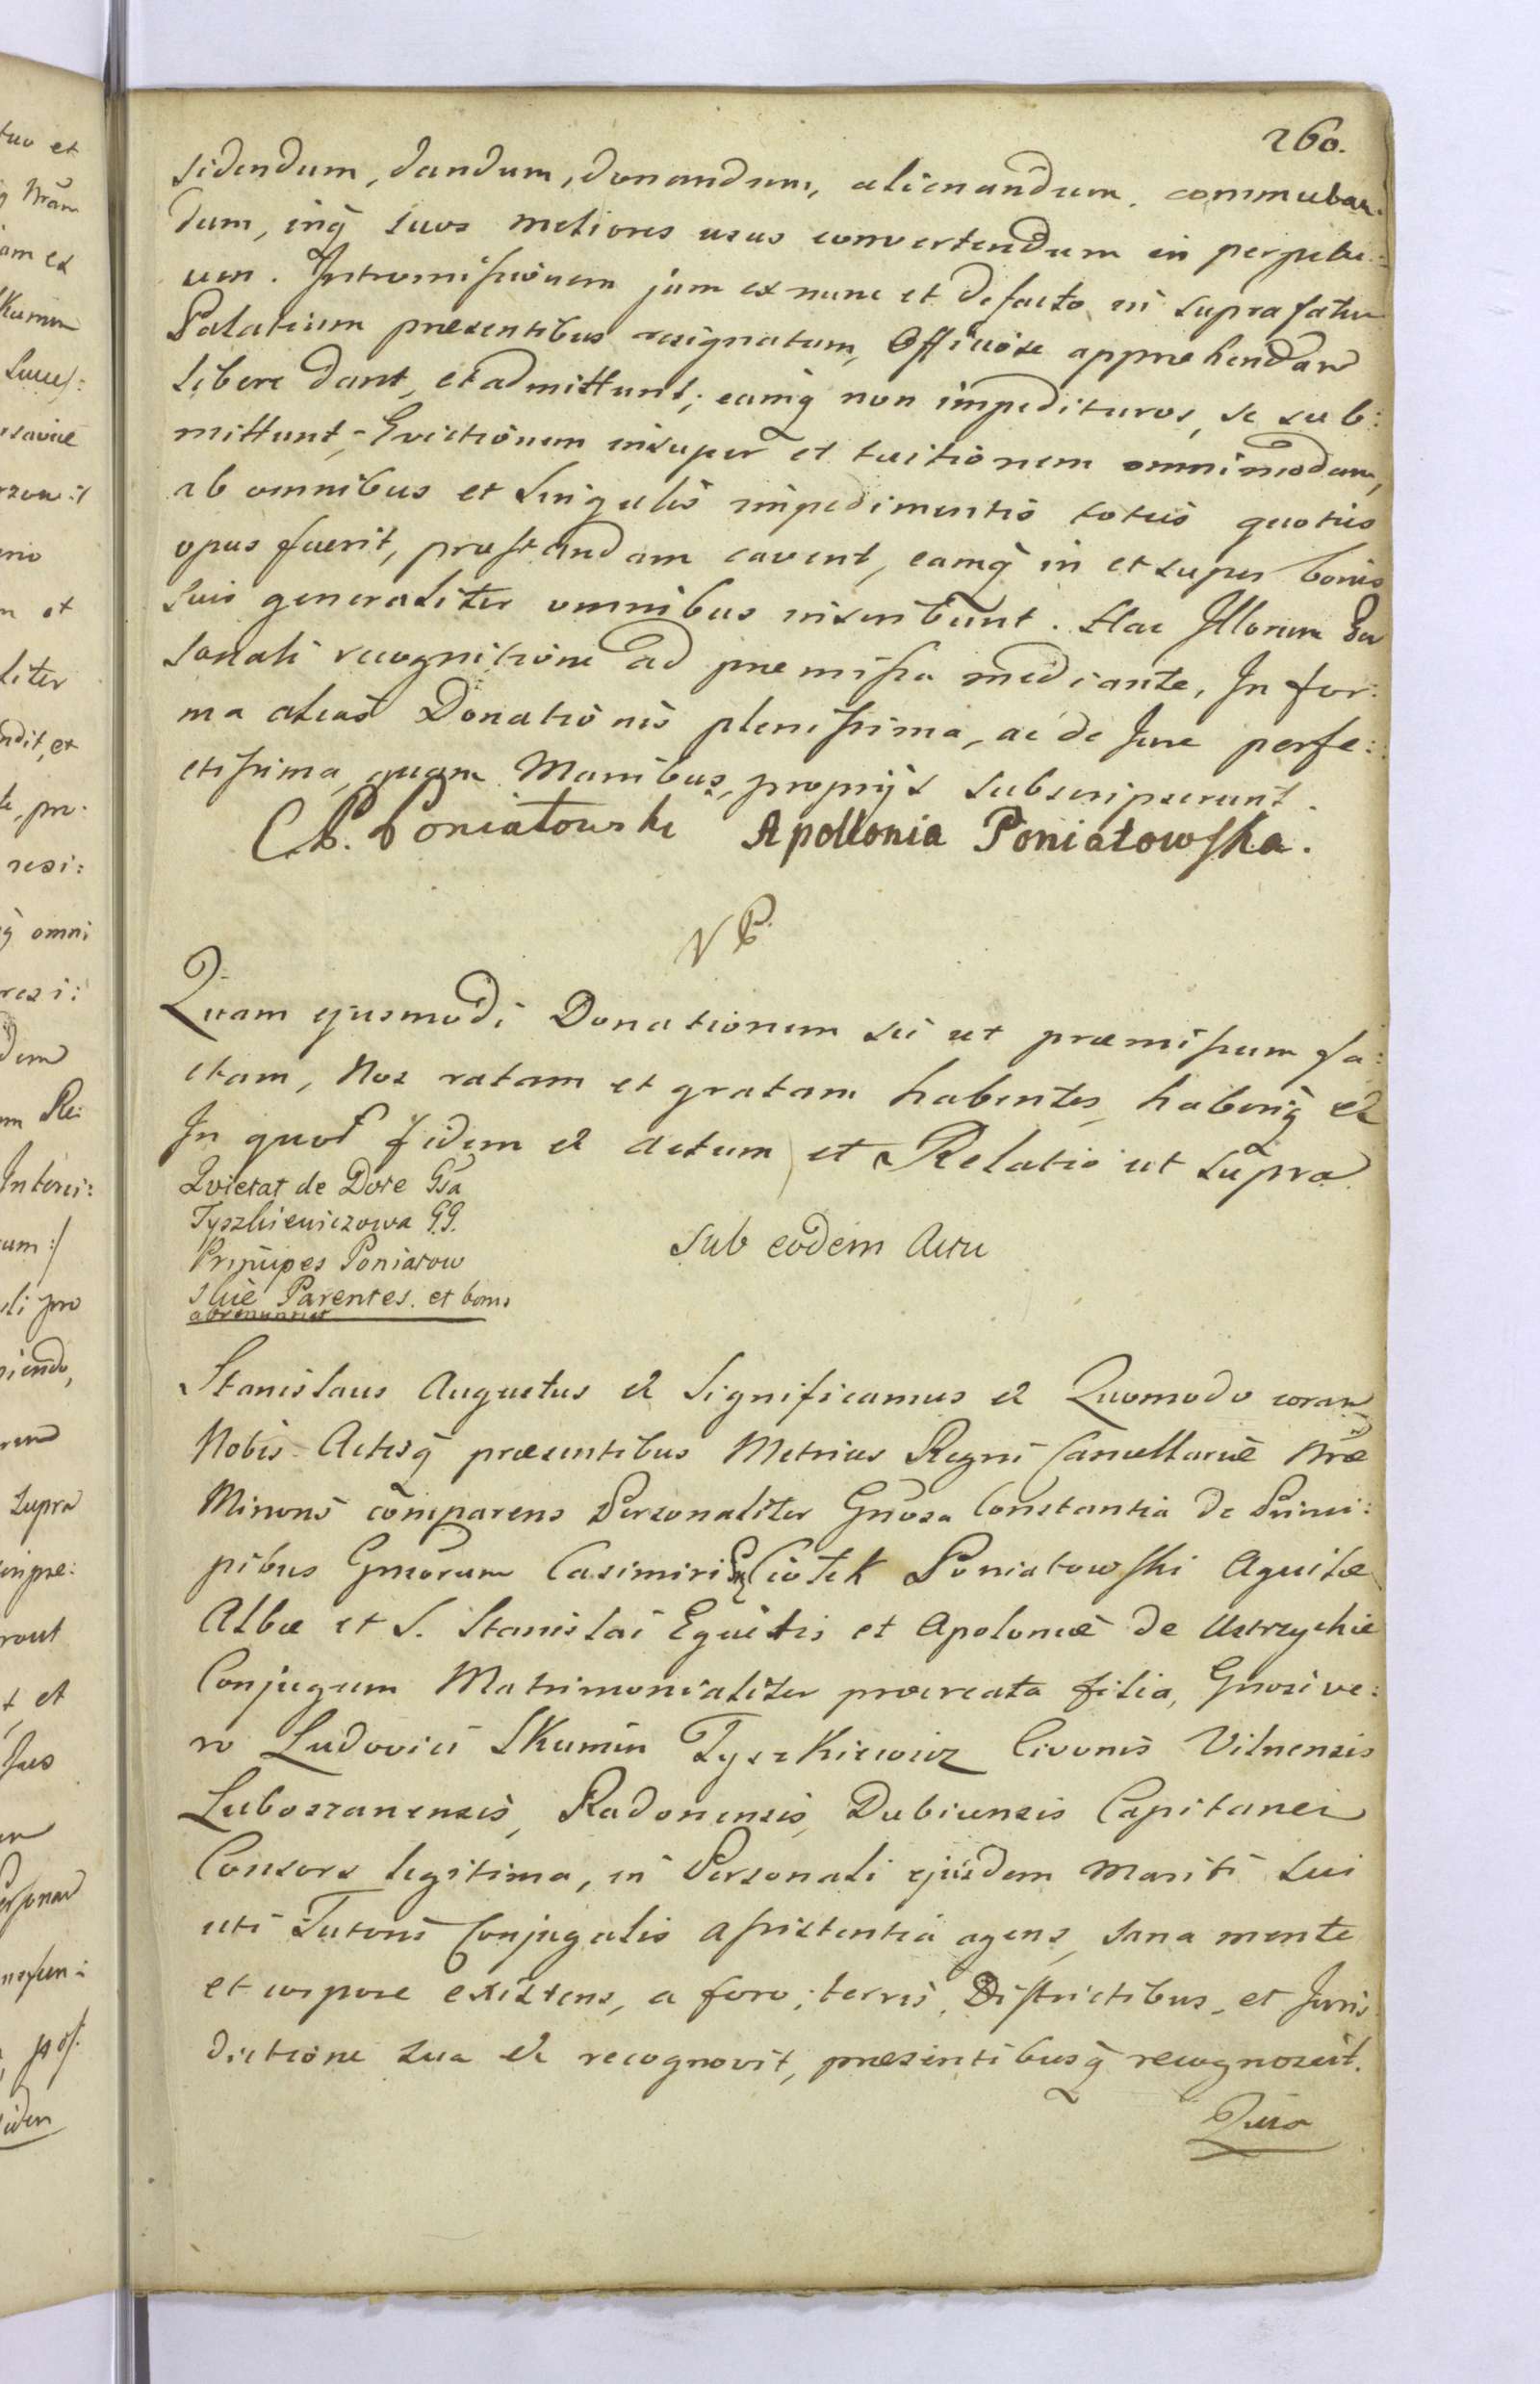 260.
sidendum, dandum, donandum, alienandum, commutan:
dum, inq̃ suos meliores usus convertendum in perpetu:
um. Intromissionem jam ex nunc et de facto in suprafatum
Palatium præsentibus resignatum, Officiose apprehendam
libere dant, et admittunt; eamq̃ non impedituros, se sub:
mittunt, Evictionem insuper et tuitionem omnimodam,
ab omnibus et singulis impedimentis toties quoties
opus fuerit, præstandam cavent, eamq̃ in et super bonis
suis generaliter omnibus inscribunt. Hac Illorum Per
sonali recognitione ad præmissa mediante, In for:
ma alias Donationis plenissima, ac de Jure perfe:
ctissima, quam Manibus, proprijs subscripserunt.
C. P. Poniatowski Apollonia Poniatowska.
Quam ejusmodi Donationem sic ut præmissum fa:
ctam, Nos ratam et gratam habentes, haberiq̃ &
In quor̃ fidem & Actum et Relatio ut supra
Qvietat de Dote Gsa
Tyszkiewiczowa GG.
Principes Poniatow
skie Parentes. et bonis
abrenuntiat
sub eodem Actu
Stanislaus Augustus & Significamus & Quomodo coram
Nobis Actisq̃ præsentibus Metrices Regni Cancellariæ Nræ
Minoris comparens Personaliter Gnosa Constantia de Princi:
pibus Gnsorum Casimiri Ciołek Poniatowski Aquilæ
Albæ et S. Stanislai Equitis et Apoloniæ de Ustrzyckie
Conjugum Matrimonialiter procreata filia, Gnosi ve:
ro Ludovici Skumin Tyszkiewicz Civonis Vilnensis
Luboszanensis, Radonensis, Dubiensis Capitanei
Consors legitima, in Personali ejusdem Mariti sui
uti Tutoris Conjugalis assistentia agens, sana mente
et corpore existens, a foro, terris, Districtibus, et Juris
dictione sua & recognovit, præsentibusq̃ recognoscit.
Quia